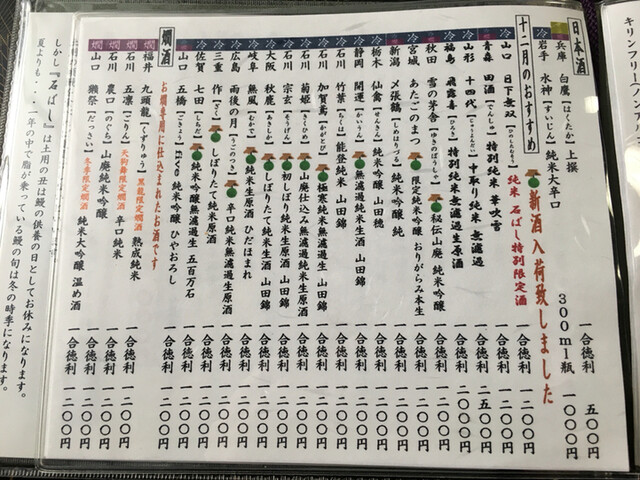 キリンフリー(ノン
日本酒
兵庫 白鷹【はくたか】 上撰 一合徳利 五〇〇円
岩手 水神【すいじん】 純米大辛口 300ml瓶 一〇〇〇円
十二月のおすすめ 新酒入荷致しました
冷 山口 日下無双【ひのしたむそう】 純米 石ばし特別限定酒 一合徳利 一二〇〇円
冷 青森 田酒【でんしゅ】 特別純米 華吹雪 一合徳利 一五〇〇円
冷 山形 十四代 中取り純米 無濾過 一合徳利 一二〇〇円
冷 福島 飛露喜【ひろき】 特別純米無濾過生原酒 一合徳利 一二〇〇円
冷 秋田 雪の茅舎【ゆきのぼうしゃ】 秘伝山廃 純米吟醸 一合徳利 一二〇〇円
冷 宮城 あたごのまつ 限定純米吟醸 おりがらみ本生 一合徳利 一二〇〇円
新潟 〆張鶴【しめはりづる】 純米吟醸 純 一合徳利 一二〇〇円
冷 栃木 仙禽【せんきん】 純米吟醸 山田穂 一合徳利 一二〇〇円
冷 静岡 開運【かいうん】 無濾過純米生酒 山田錦 一合徳利 一二〇〇円
冷 石川 竹葉【ちくは】 能登純米 山田錦 一合徳利 一二〇〇円
冷 石川 加賀鳶【かがとび】 極寒純米無濾過生原酒 一合徳利 一二〇〇円
冷 石川 菊姫【きくひめ】 山廃仕込み無濾過生原酒 一合徳利 一二〇〇円
冷 石川 宗玄【そうげん】 初しぼり純米生原酒 山田錦 一合徳利 一二〇〇円
冷 大阪 秋鹿【あきしか】 しぼりたて純米生酒 山田錦 一合徳利 一二〇〇円
冷 岐阜 無風【むかで】 純米生原酒 ひだほまれ 一合徳利 一二〇〇円
冷 広島 雨後の月【うごのつき】 辛口純米無濾過生原酒 一合徳利 一二〇〇円
冷 三重 作【ざく】 しぼりたて純米原酒 一合徳利 一二〇〇円
冷 佐賀 七田【しちだ】 純米吟醸無濾過生 五百万石 一合徳利 一二〇〇円
冷 山口 五橋【ごきょう】 純米吟醸 ひやおろし 一合徳利 一二〇〇円
燗酒 お燗専用に仕込まれたお酒です
燗 福井 九頭龍【くずりゅう】 黒龍限定燗酒 熟成純米 一合徳利 一二〇〇円
燗 石川 五凛【ごりん】 天狗舞限定燗酒 辛口純米 一合徳利 一二〇〇円
燗 石川 農口【のぐち】 山廃純米吟醸 一合徳利 一二〇〇円
燗 山口 獺祭【だっさい】 冬季限定燗酒 純米大吟醸 温め酒 一合徳利 一二〇〇円
しかし『石ばし』は土用の丑は鰻の供養の日としてお休みになります。
夏よりも・・一年の中で脂が乗っている鰻の旬は冬の時季になります。